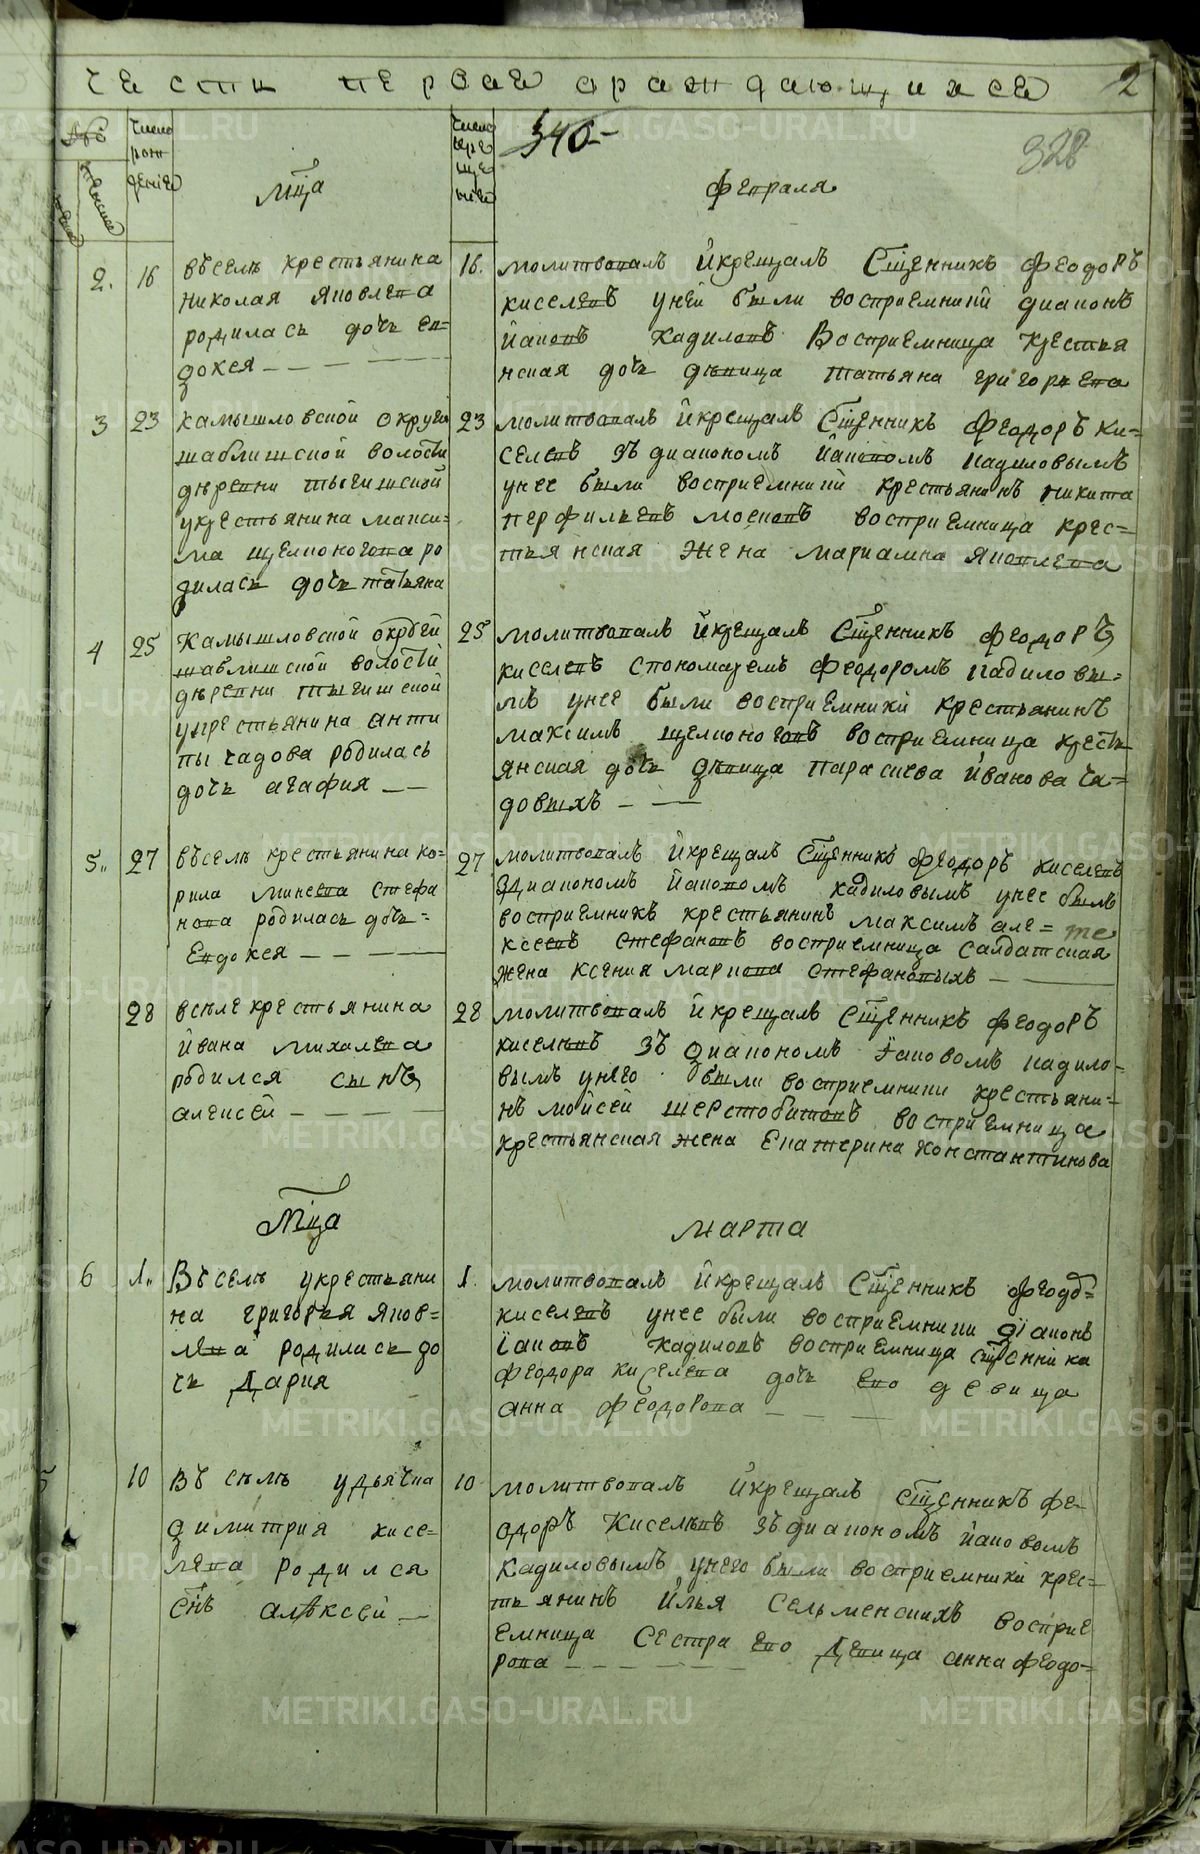 части первае ораждающихсе 2
340
328
№
число рождение
число крещение
Мца февраля
2. 16
въселъ крестьянина
николая яковлева
родилась дочь ев=
докея
16.
молитвовалъ йкрещалъ Сщенникъ феодоръ
киселевъ уней были восприемникй диаконъ
йаковъ кадиловъ восприемница крестья
нская дочь дѣвица татьяна григорьева
3 23
камышловской округи
шаблишской волости
дѣревни тыгишской
укрестьянина макси=
ма щелконогова ро
дилась дочь татьяна
23
молитвовалъ йкрещалъ Сщенникъ феодоръ ки=
селевъ зъдиакономъ йаковомъ кадиловымъ
унее были восприемникй крестьянинъ никита
перфильевъ восприемница крес=
тьянская жена мариамна яковлева
4 25
камышловской округи
шаблишской волости
дѣревни тыгишской
укрестьянина анти
пы чадова родилась
дочь агафия
25
молитвовалъ йкрещалъ Сщенникъ феодоръ
киселевъ спономаремъ феодоромъ кадиловы=
мъ унее были восприемники крестьянинъ
максимъ щелконоговъ восприемница кресть
янская дочь дѣвица параскева йванова ча=
довыхъ
5. 27
въселъ крестьянина ки=
рила минеева стефа
нова родилась дочь=
Евдокея
27
молитвовалъ йкрещалъ Сщенникъ феодоръ киселевъ
здиакономъ йаковомъ кадиловымъ унее былъ
восприемникъ крестьянинъ максимъ але=
ксеевъ стефановъ восприемница салдатская
жена ксения маркова стефановыхъ
28
всѣле крестьянина
йвана михалева
родился сынъ
алексей
28
молитвовалъ йкрещалъ Сщенникъ феодоръ
киселевъ зъ диакономъ їаковомъ кадило=
вымъ унего были восприемники крестьяни=
нъ мойсей шерстобитовъ восприемница
крестьянская жена Екатерина константинова
Мца марта
6 1.
Въселъ укрестьяни
на григорья яков=
лева родилась до
чь Дария
1.
молитвовалъ йкрещалъ Сщенникъ феодо=
киселевъ унее были восприемники діаконъ
їаковъ кадиловъ восприемница сщенника
феодора киселева дочь ево девица
анна феодорова
10
Въ сѣлѣ удьячка
димитрия кисе=
лева родился
снъ алѣксей
10
молитвовалъ йкрещалъ сщенникъ фе=
одоръ киселевъ зъдиакономъ йаковомъ
кадиловымъ унего были восприемникй крес=
тьянинъ йлья Сельменскихъ восприе
емница Сестра ево девица анна феодо=
рова
METRIKI.GASO-URAL.RU